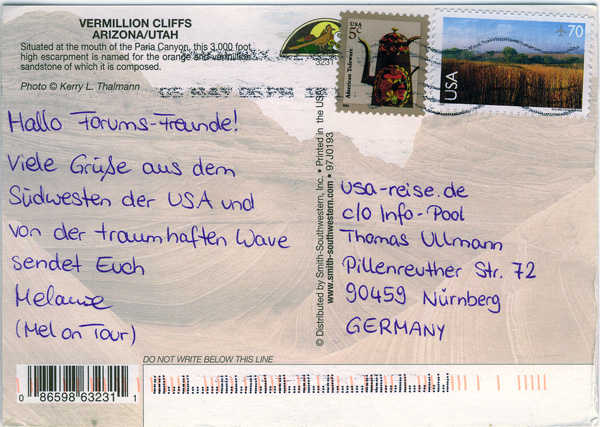 VERMILLION CLIFFS
ARIZONA/UTAH
Situated at the mouth of the Paria Canyon, this 3,000 foot
high escarpment is named for the orange and vermillion
sandstone of which it is composed.
Photo © Kerry L. Thalmann
USA
5c
American Toleware
70
USA
Hallo Forums-Freunde!
Viele Grüße aus dem
Südwesten der USA und
von der traumhaften Wave
sendet Euch
Melanie
(Mel on Tour)
© Distributed by Smith-Southwestern, Inc. • Printed in the USA
www.smith-southwestern.com • 97J0193
usa-reise.de
c/o Info-Pool
Thomas Ullmann
Pillenreuther Str. 72
90459 Nürnberg
GERMANY
DO NOT WRITE BELOW THIS LINE
0 86598 63231 1